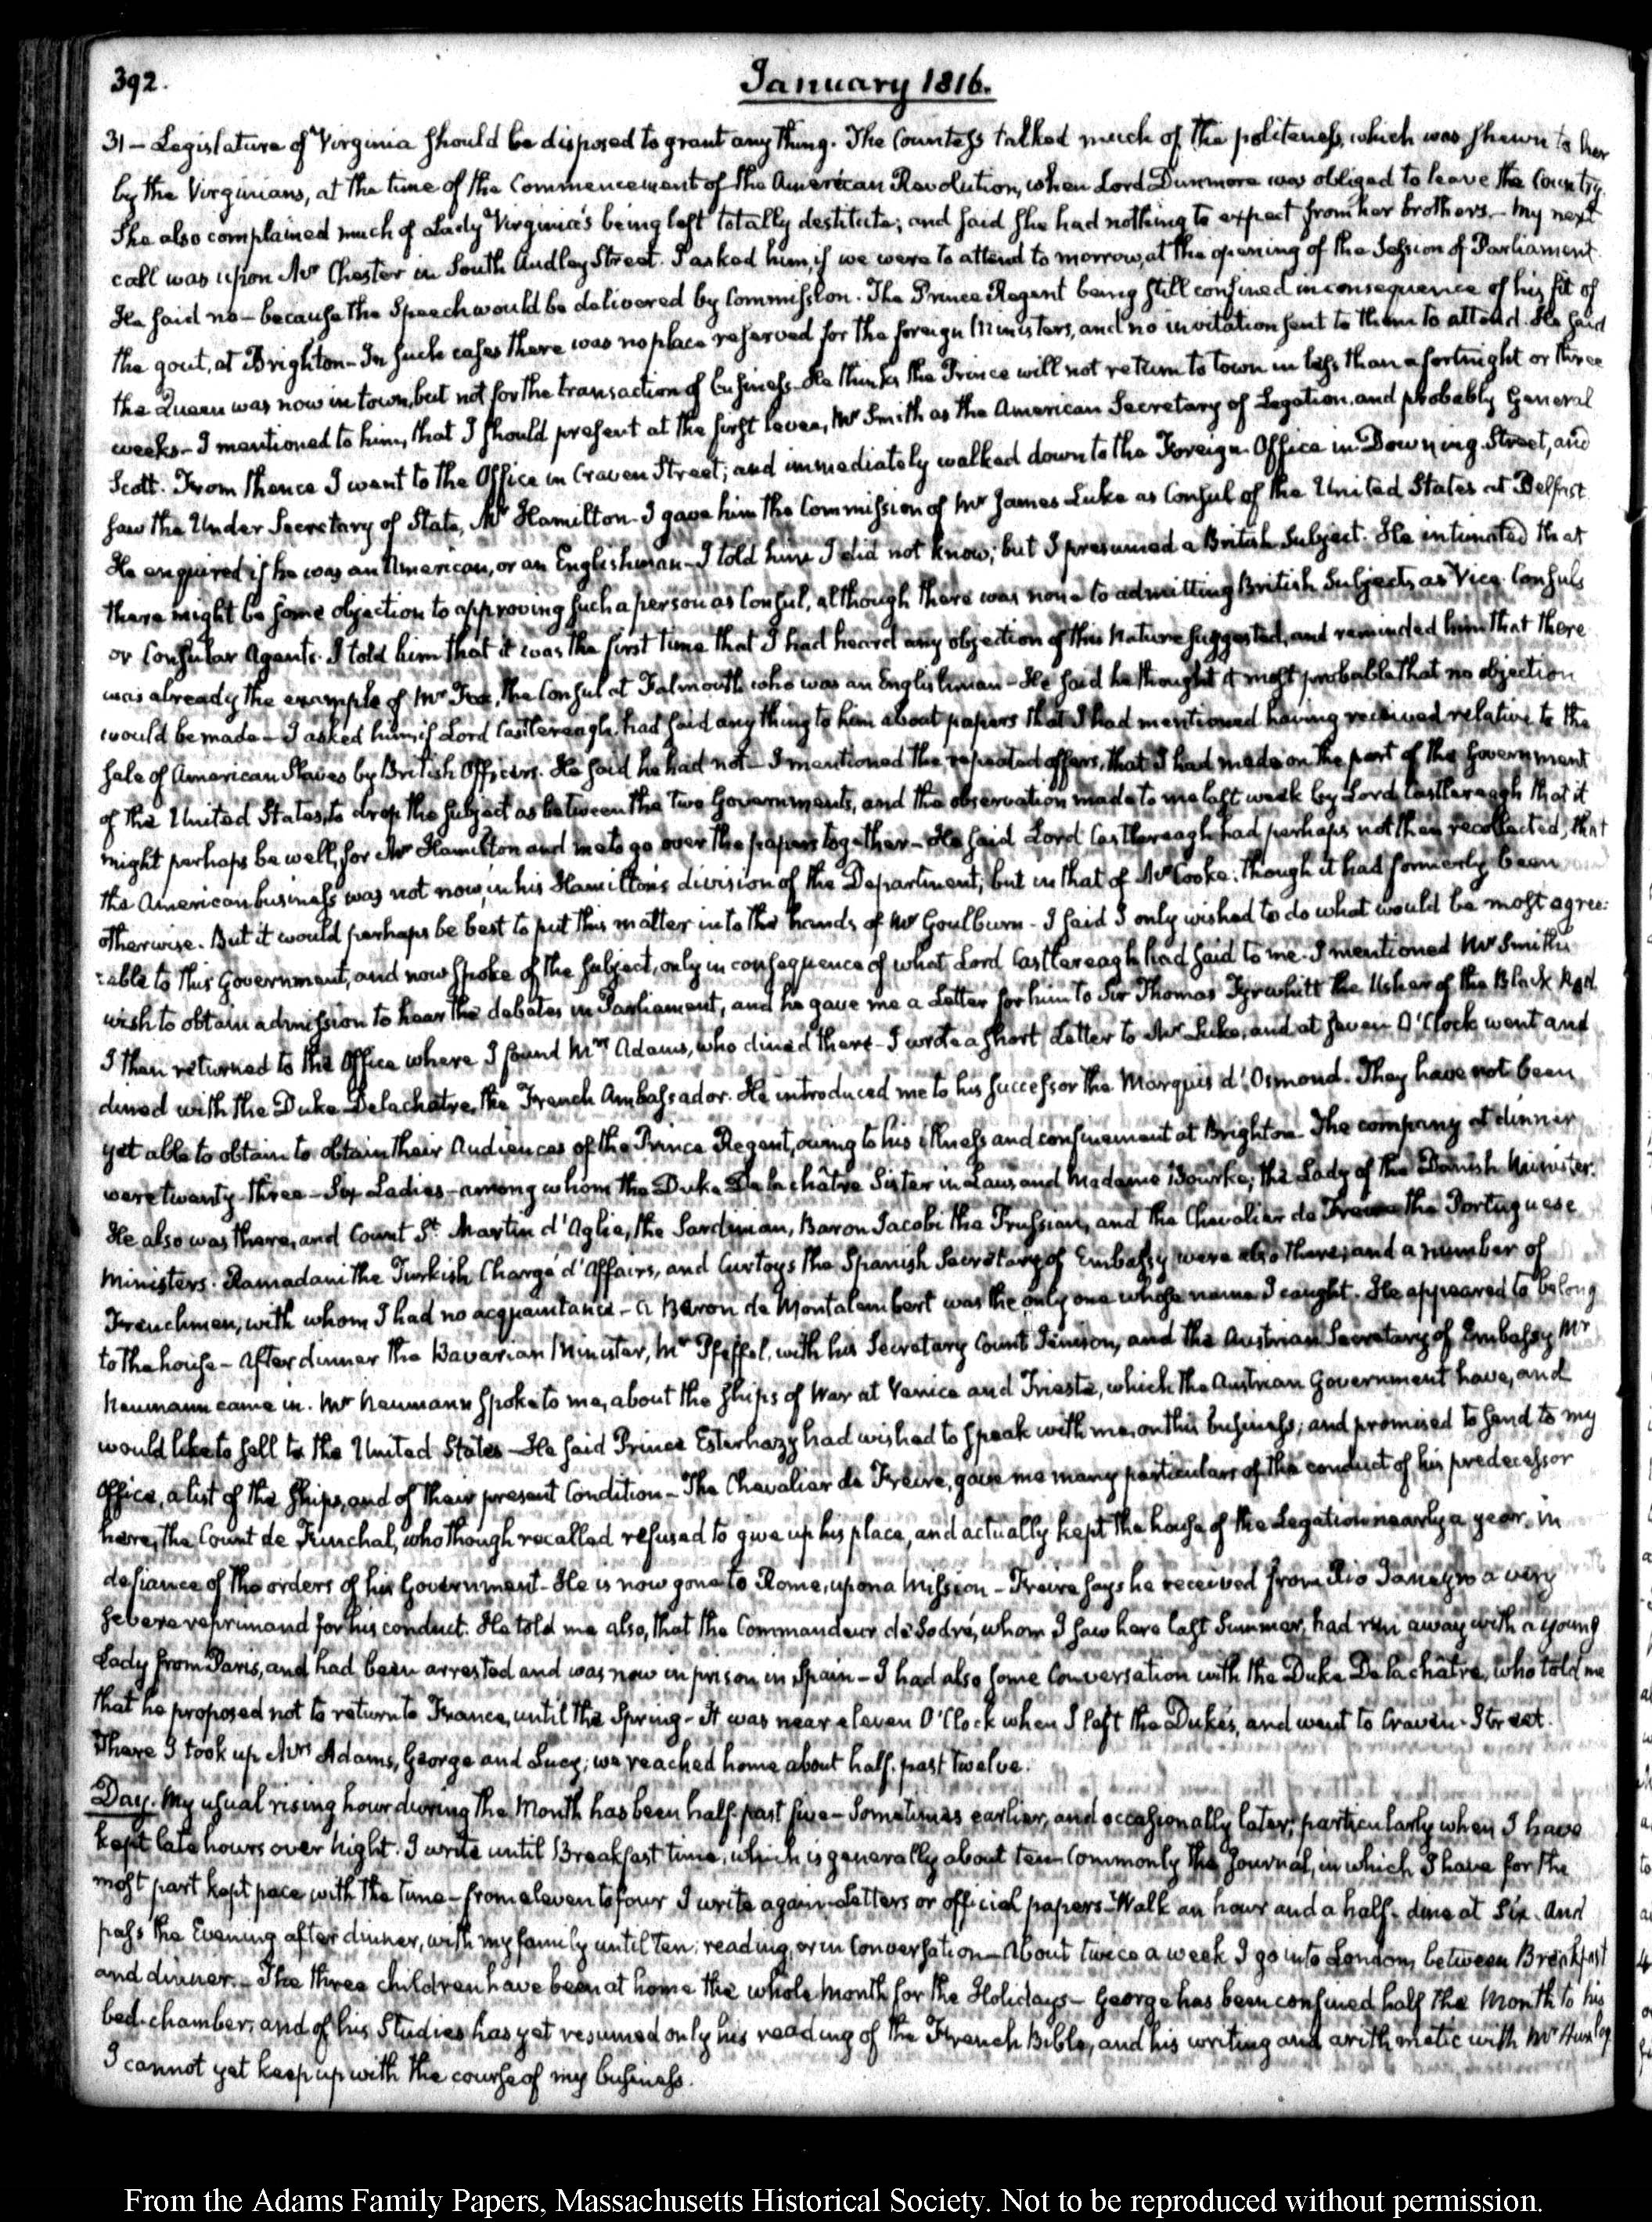 392.
January 1816.
31 – Legislature of Virginia should be disposed to grant any thing. The Countess talked much of the politeness, which was shewn to her
by the Virginians, at the time of the Commencement of the American Revolution, when Lord Dunmore was obliged to leave the Country.
She also complained much of Lady Virginia's being left totally destitute; and said she had nothing to expect from her brothers. – My next
call was upon Mr Chester in South Audley Street. I asked him, if we were to attend to morrow, at the opening of the Session of Parliament.
He said no – because the Speech would be delivered by Commission. The Prince Regent being still confined in consequence of his fit of
the gout, at Brighton – In such cases there was no place reserved for the foreign Ministers, and no invitation sent to them to attend. He said
the Queen was now in town, but not for the transaction of business – He thinks the Prince will not return to town in less than a fortnight or three
weeks – I mentioned to him, that I should present at the first levee, Mr Smith as the American Secretary of Legation, and probably General
Scott. From thence I went to the Office in Craven Street; and immediately walked down to the Foreign Office in Downing Street, and
saw the Under Secretary of State, Mr Hamilton – I gave him the Commission of Mr James Luke as Consul of the United States at Belfast.
He enquired if he was an American, or an Englishman – I told him I did not know; but I presumed a British Subject. He intimated that
there might be some objection to approving such a person as Consul, although there was none to admitting British Subjects as Vice Consuls
or Consular Agents. I told him that it was the first time that I had heard any objection of this Nature suggested, and reminded him that there
was already the example of Mr Fox, the Consul at Falmouth who was an Englishman – He said he thought it most probable that no objection
would be made – I asked him, if Lord Castlereagh had said any thing to him about papers that I had mentioned having received relative to the
sale of American Slaves by British Officers. He said he had not – I mentioned the repeated offers, that I had made on the part of the Government
of the United States, to drop the subject as between the two Governments, and the observation made to me last week by Lord Castlereagh that it
might perhaps be well, for Mr Hamilton and me to go over the papers together – He said Lord Castlereagh had perhaps not then recollected, that
the American business was not now, in his Hamilton's division of the Department; but in that of Mr Cooke: though it had formerly been
otherwise. But it would perhaps be best to put this matter into the hands of Mr Goulburn – I said I only wished to do what would be most agree:
:able to this Government, and now spoke of the subject, only in consequence of what Lord Castlereagh had said to me – I mentioned Mr Smith's
wish to obtain admission to hear the debates in Parliament, and he gave me a Letter for him to Sir Thomas Tyrwhitt the Usher of the Black Rod.
I then returned to the Office where I found Mrs Adams, who dined there – I wrote a short Letter to Mr Luke, and at seven O'Clock went and
dined with the Duke Delachatre, the French Ambassador. He introduced me to his successor the Marquis d'Osmond. They have not been
yet able to obtain to obtain their Audiences of the Prince Regent, owing to his illness and confinement at Brighton. The company at dinner
were twenty-three – Six Ladies – among whom the Duke De la châtre Sister in Law, and Madame Bourke, the Lady of the Danish Minister.
He also was there, and Count St Martin d'Aglie, the Sardinian, Baron Jacobi the Prussian, and the Chevalier de Freire the Portuguese
Ministers. Ramadani the Turkish Chargé d'Affairs, and Curtoys the Spanish Secretary of Embassy were also there; and a number of
Frenchmen, with whom I had no acquaintance – a Baron de Montalembert was the only one whose name I caught. He appeared to belong
to the house – After dinner the Bavarian Minister, Mr Pfeffel, with his Secretary Count Jenison, and the Austrian Secretary of Embassy Mr
Neumann came in. Mr Neumann spoke to me, about the ships of War at Venice and Trieste, which the Austrian Government have, and
would like to sell to the United States – He said Prince Esterhazy had wished to speak with me, on this business; and promised to send to my
Office, a list of the ships, and of their present Condition – The Chevalier de Freire, gave me many particulars of the conduct of his predecessor
here, the Count de Funchal, who though recalled refused to give up his place, and actually kept the house of the Legation nearly a year, in
defiance of the orders of his Government – He is now gone to Rome, upon a Mission – Freire says he received from Rio Janeyro a very
severe reprimand for his conduct. He told me also, that the Commandeur de Sodré, whom I saw here last Summer, had run away with a young
Lady from Paris, and had been arrested and was now in prison in Spain – I had also some Conversation with the Duke De la châtre, who told me
that he proposed not to return to France, until the Spring – It was near eleven O'Clock when I left the Duke's, and went to Craven Street.
There I took up Mrs Adams, George and Lucy; we reached home about half past twelve.
Day. My usual rising hour during the Month has been half past five – Sometimes earlier, and occasionally later; particularly when I have
kept late hours over night. I write until Breakfast time, which is generally about ten – Commonly the Journal, in which I have for the
most part kept pace with the time – from eleven to four I write again – Letters or official papers – Walk an hour and a half – dine at Six – And
pass the Evening after dinner, with my family until ten; reading, or in Conversation – About twice a week I go into London, between Breakfast
and dinner. – The three children have been at home the whole Month for the Holidays – George has been confined half the Month to his
bed-chamber; and of his Studies has yet resumed only his reading of the French Bible, and his writing and arithmetic with Mr
I cannot yet keep up with the course of my business.
From the Adams Family Papers, Massachusetts Historical Society. Not to be reproduced without permission.